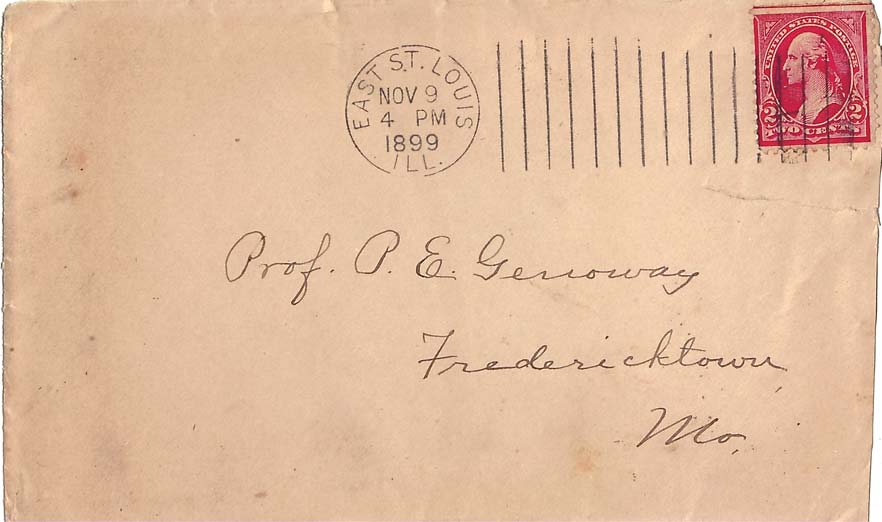 EAST ST. LOUIS
NOV 9
4 PM
1899
ILL.
UNITED STATES POSTAGE
2 2
TWO CENTS
Prof. P. E. Genoway
Fredericktown
Mo.